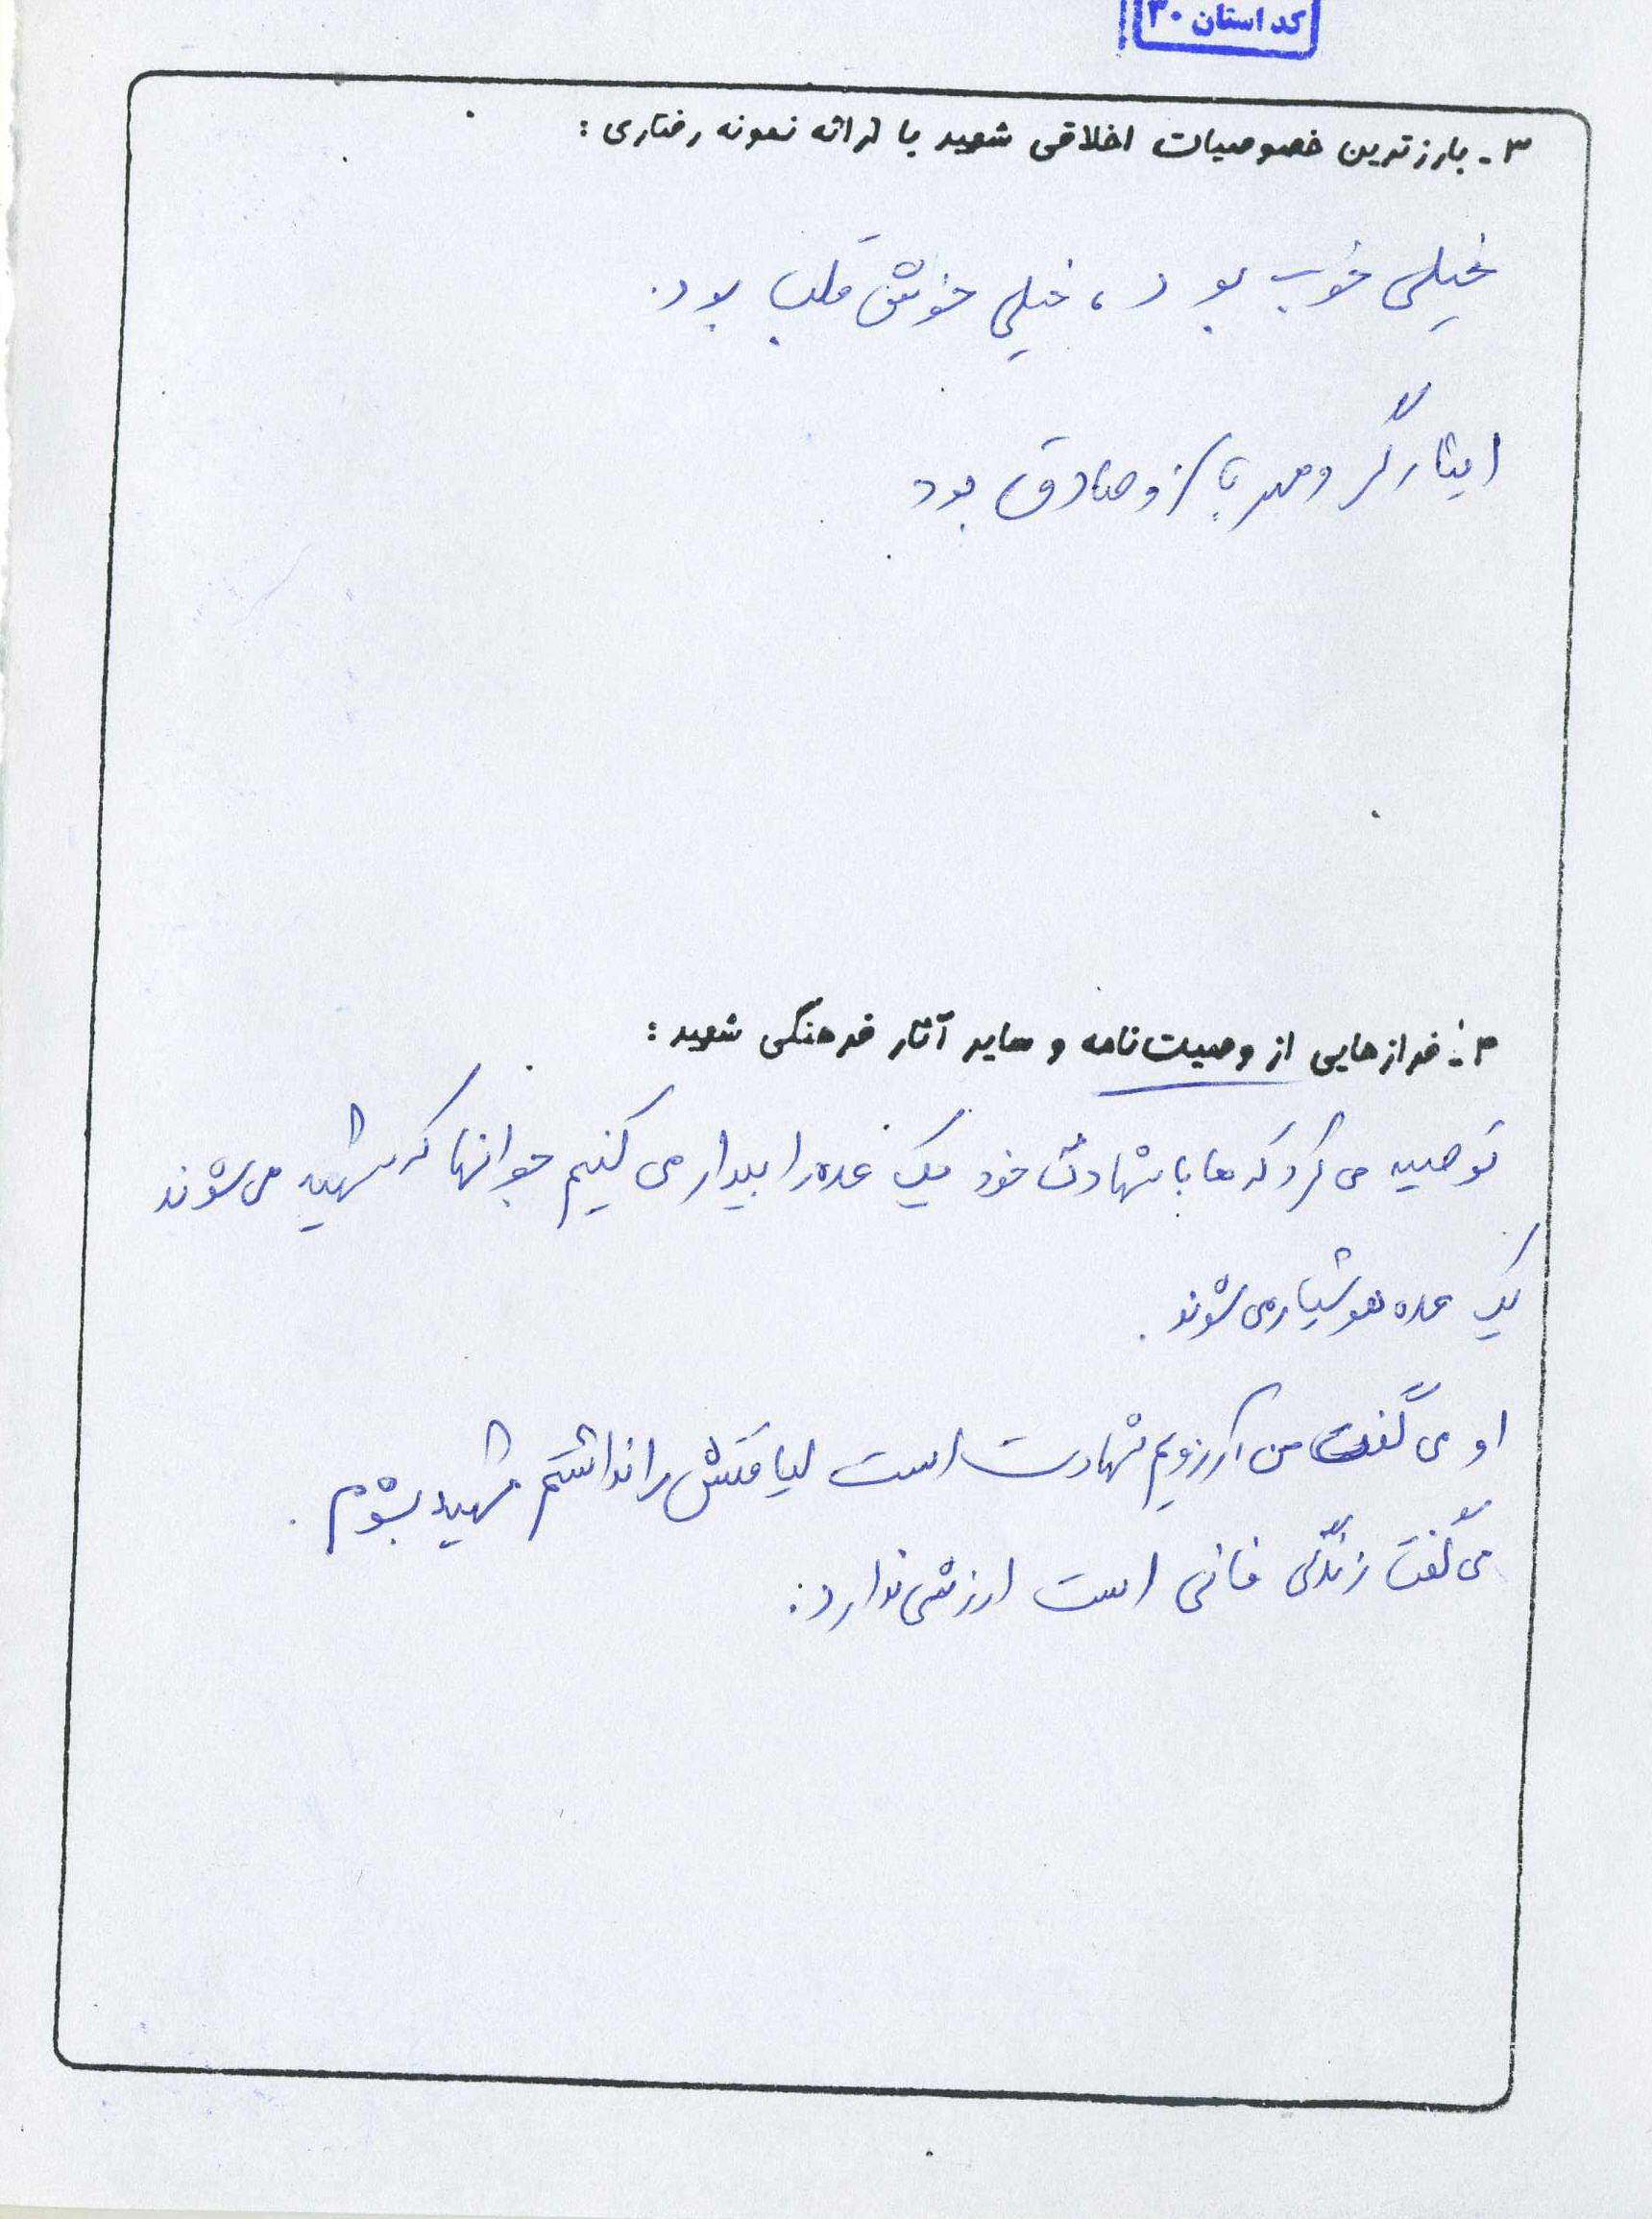 کد استان ۳۰
۳- بارزترین خصوصیات اخلاقی شهید با ارائه نمونه رفتاری :
خیلی خوب بود ، خیلی خوش قلب بود.
ایثارگر و مهربان و صادق بود
۴- فرازهایی از وصیت‌نامه و سایر آثار فرهنگی شهید :
توصیه می کرد که ما با شهادت خود یک عده را بیدار می کنیم جوانها که شهید می شوند
یک عده هوشیار می شوند.
او می گفت من آرزویم شهادت است لیاقتش را نداشتم شهید بشوم.
می گفت زندگی فانی است ارزشی ندارد.